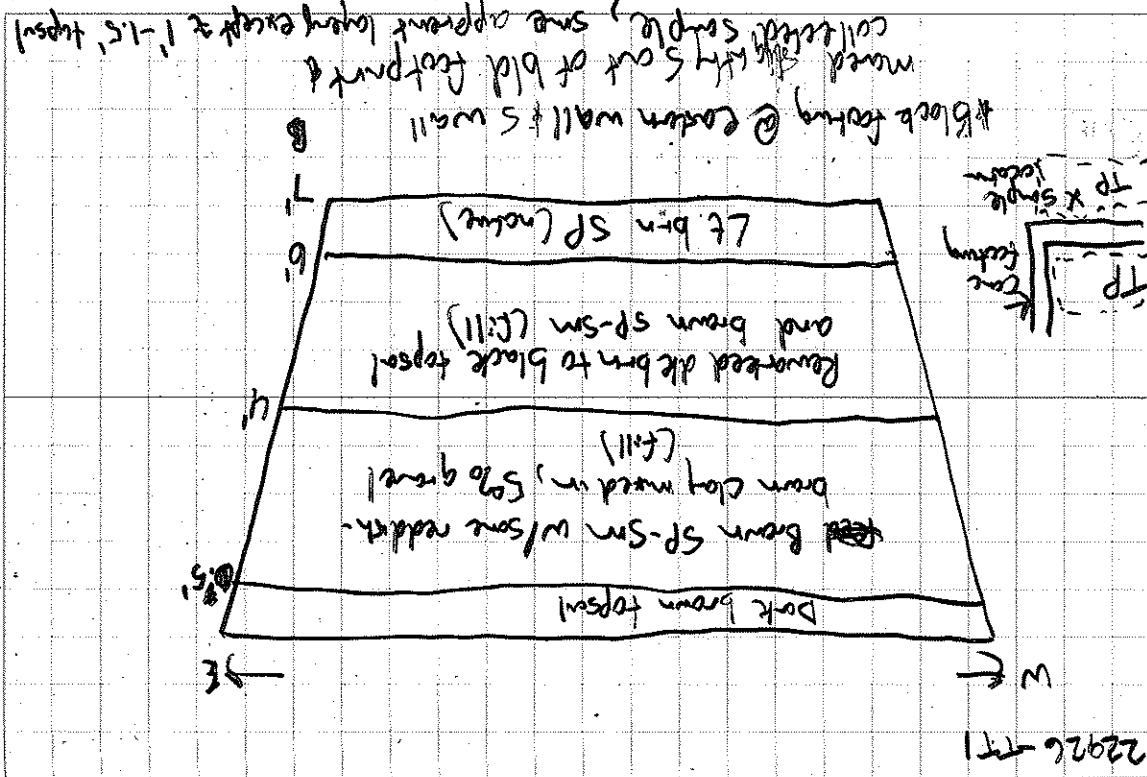 22926-TT1
W
E
Dark brown topsoil
0.5'
Brown SP-SM w/some reddish-
brown clay mixed in, 5% gravel
(fill)
4'
Reworked dk brn to black topsoil
and brown SP-SM (fill)
6'
Lt. brn SP (native)
7'
TP
Conc
footing
TP x sample
location
*Block footing @ eastern wall & S wall
moved slightly S out of bld footprint &
collected sample, same apparent layering except ≈ 1'-1.5' topsoil